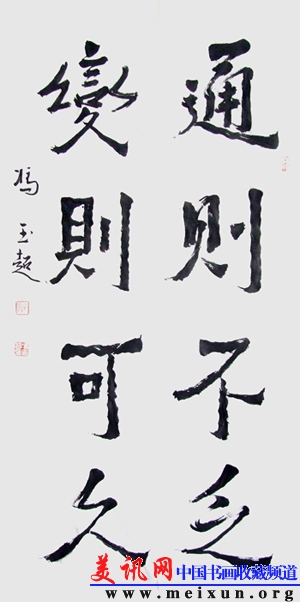 通则不乏
變則可久
馮玉超
美讯网 中国书画收藏频道
www.meixun.org